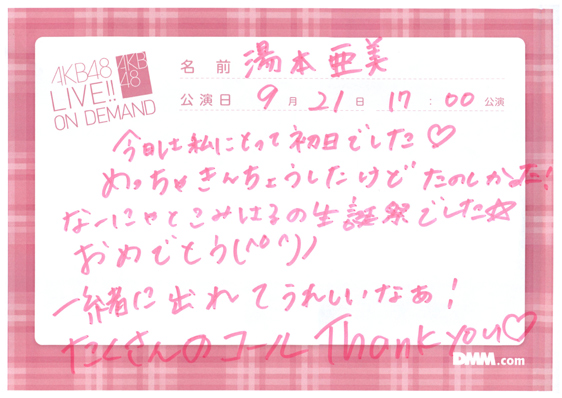 AKB48
LIVE!!
ON DEMAND
AKB
48
名 前 湯本亜美
公演日 9月21日 17:00公演
今日は私にとって初日でした♡
めっちゃきんちょうしたけど たのしかった!
なーにゃとこみはるの生誕祭でした☆
おめでとう(^o^)ノ
一緒に出れてうれしいなぁ!
たくさんのコール Thank you♡
DMM.com